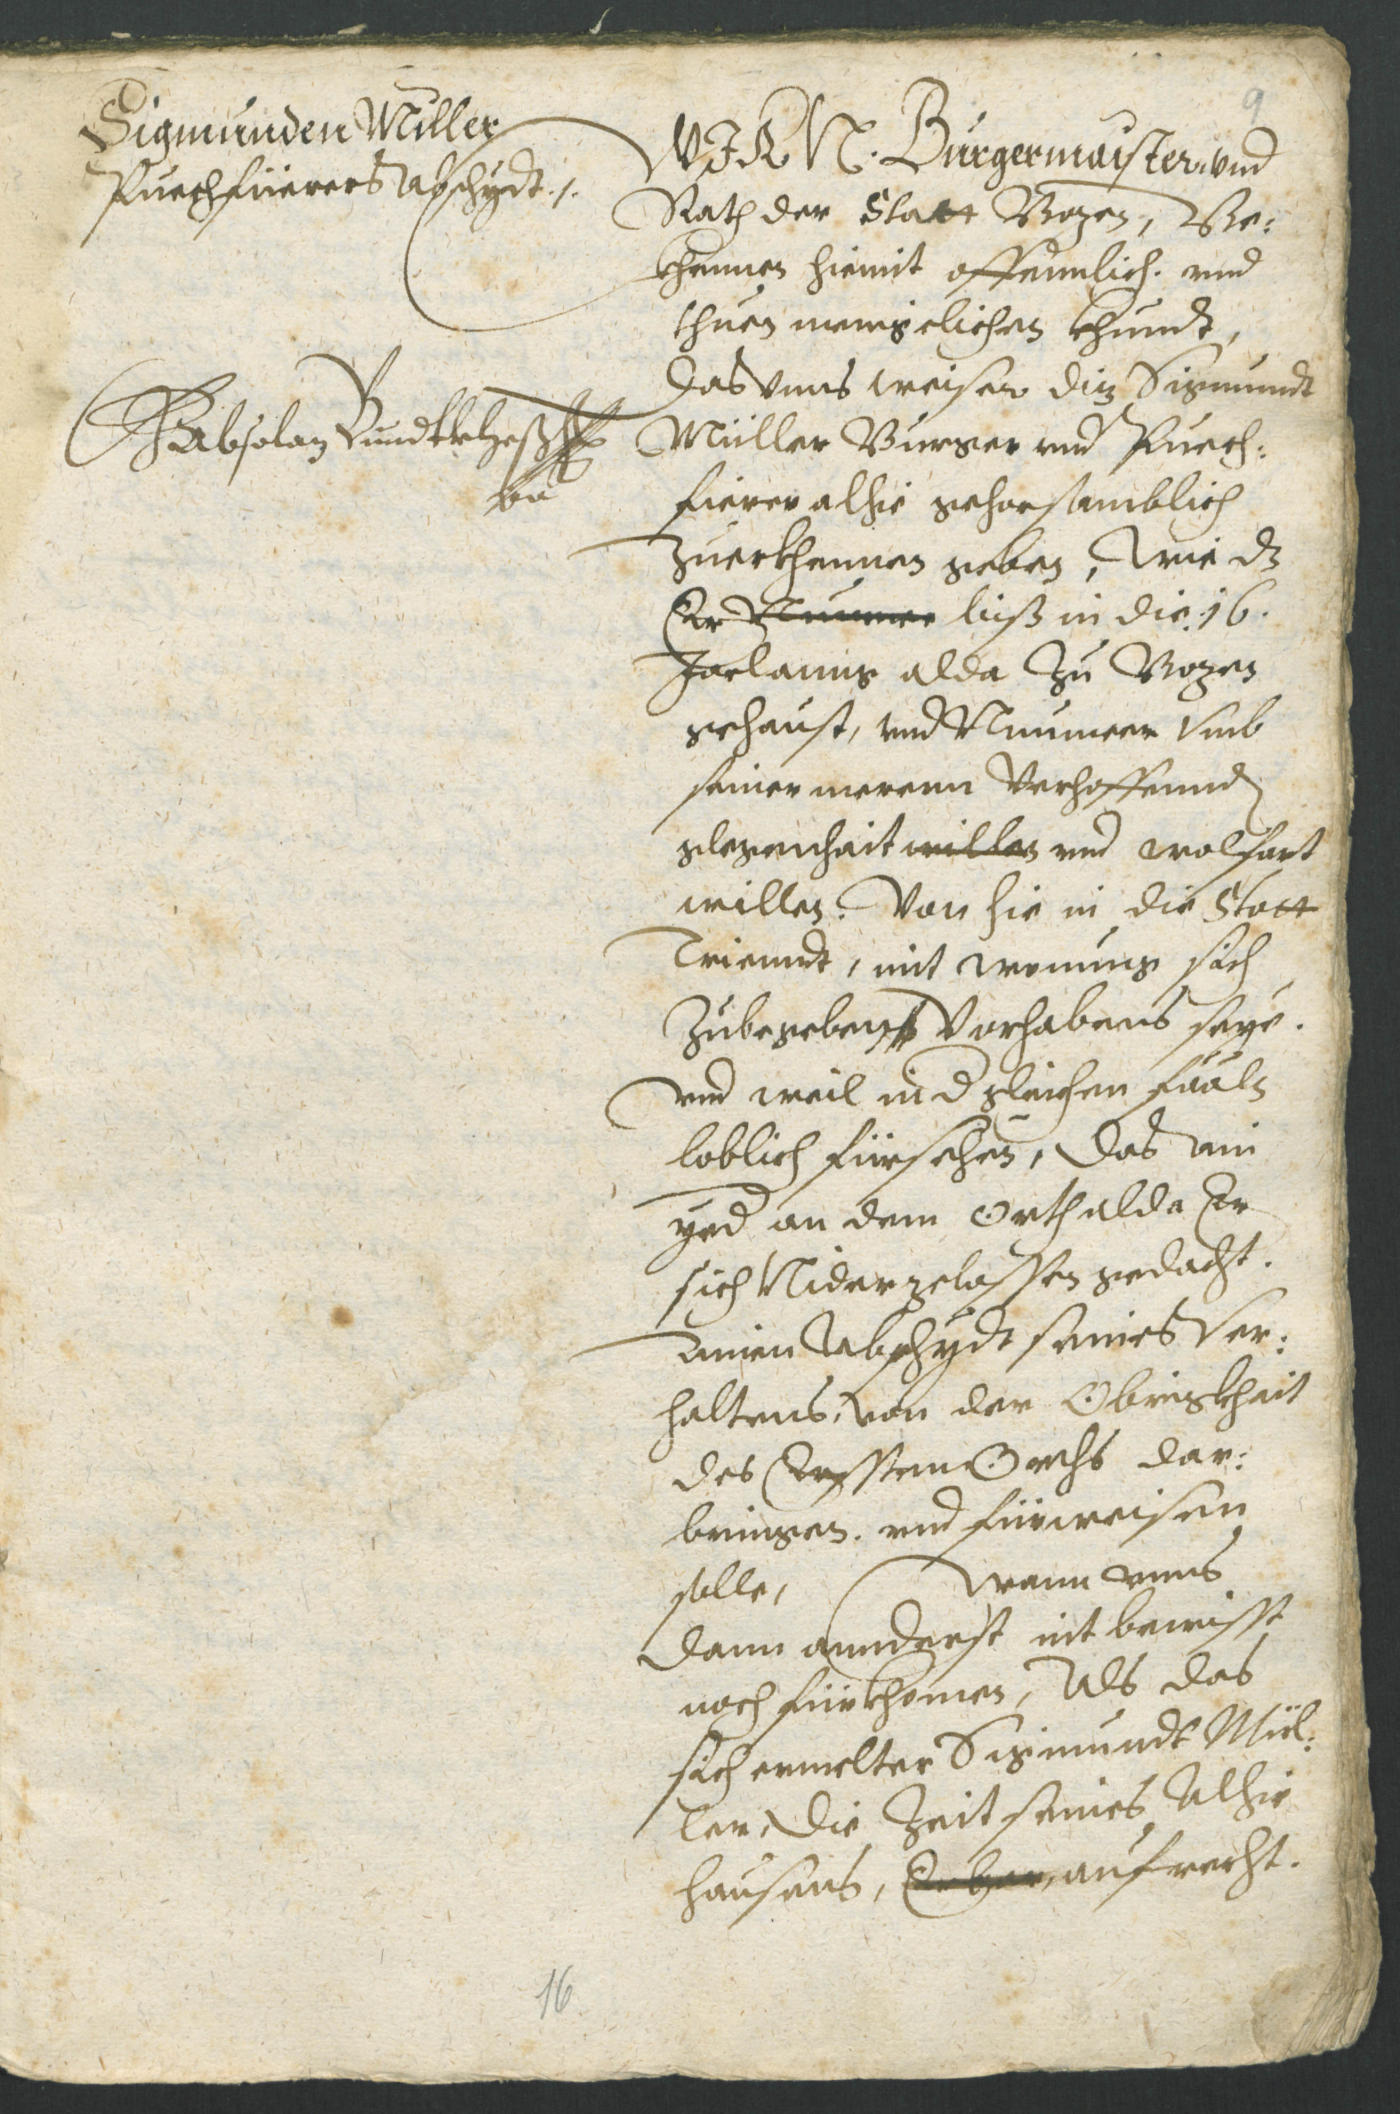 9
Sigmunden Müller
Puechfüerers Abschydt ./.
Absolon
WIR N. Burgermaister vnd
Rath der Statt Bozen, Be:
khennen hiemit offenndlich. vnd
thuen menigelichen khundt,
Das vnns weiser diz Sigmundt
Müller Burger vnd Puech:
fierer alhie gehorsamblich
zuerkhennen geben, Wie dz
Er Nunmer biß in die .16.
Jarlanng alda zu Bozen
gehaust, vnd Nunmeer vmb
seiner merern Verhoffennd
glegenhait willen vnd wolfart
willen. Von hie in die Statt
Triendt, mit wonung sich
Zubegeben Vorhabens seye.
vnd weil in d gleichen fääln
loblich fürsehen, das ain
yed an dem Orth alda Er
sich Niderzelassen gedacht.
ainen Abschydt seines Ver:
haltens, von der Obrigkhait
des Erssten Orths dar:
bringen. vnd fürweisen
solle, Wann vnns
dann annderst nit bewisst
noch fürkhomen, Als das
sich ermelter Sigmundt Mül:
ler, die Zeit seines Alhie
hausens, Erber, aufrecht.
16